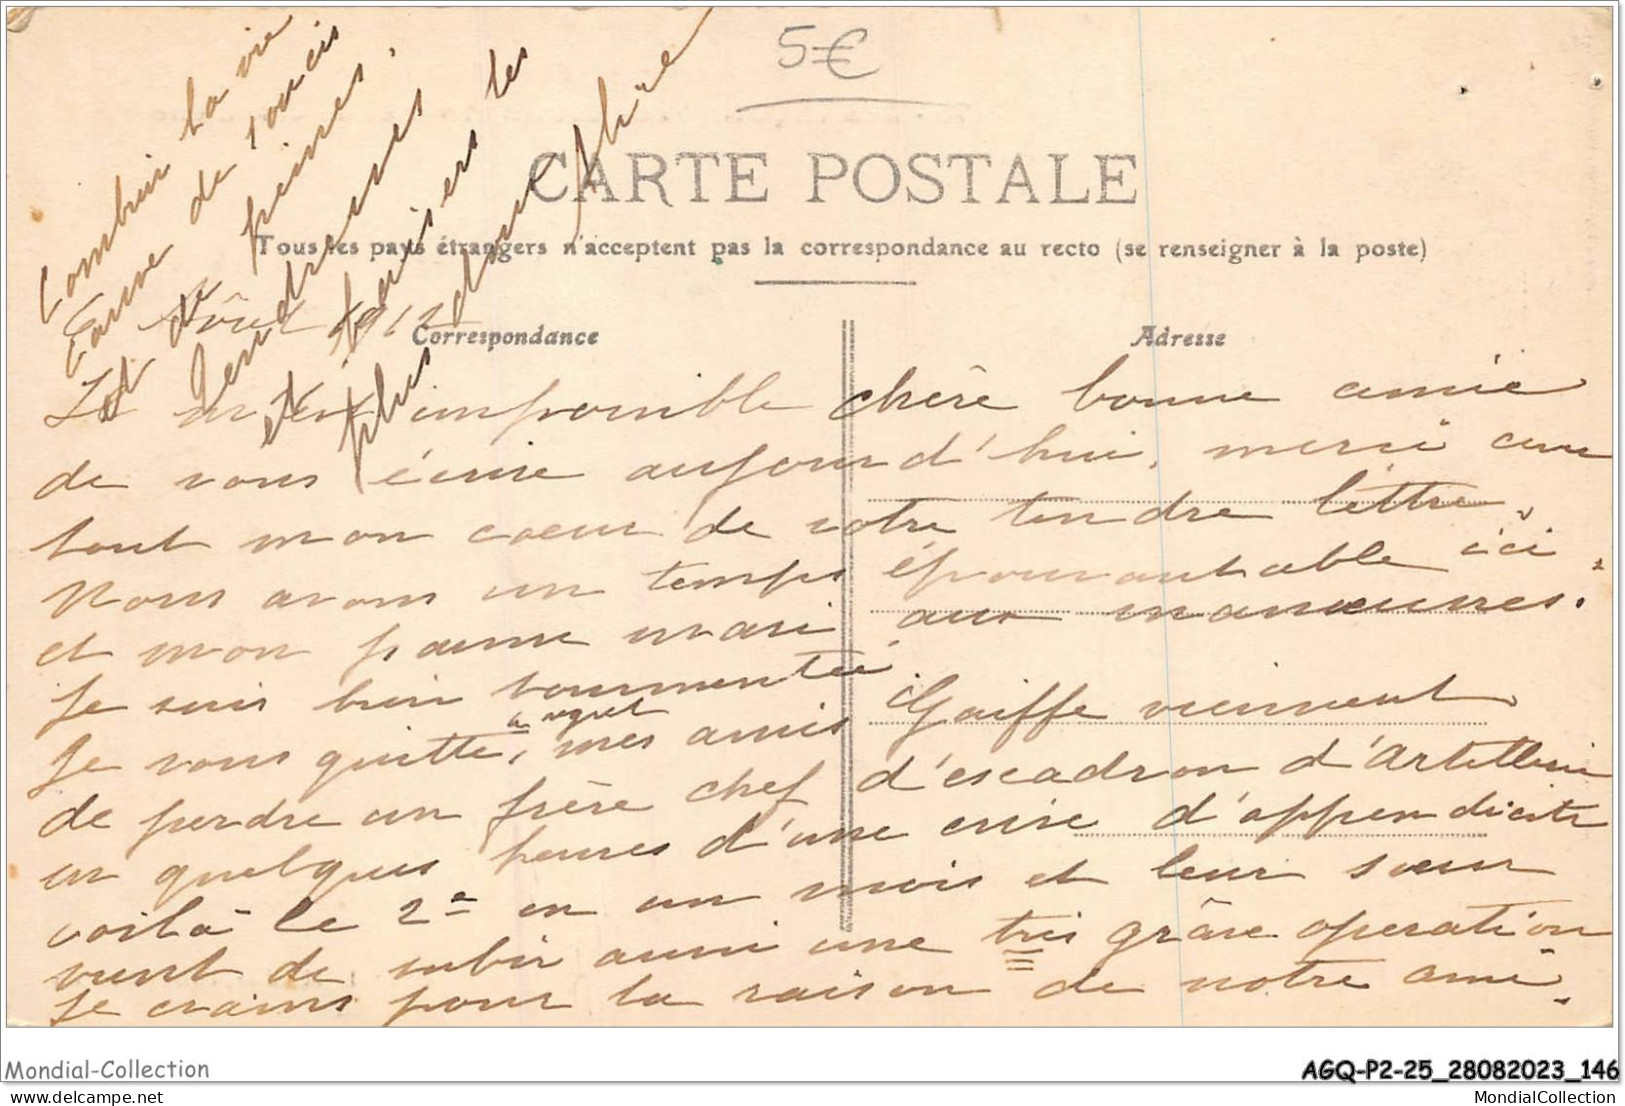 5€
CARTE POSTALE
Tous les pays étrangers n'acceptent pas la correspondance au recto (se renseigner à la poste)
Correspondance
Adresse
Août 1912
Il m'est impossible chère bonne amie
de vous écrire aujourd'hui, merci avec
tout mon coeur de votre tendre lettre.
Nous avons un temps épouvantable ici,
et mon pauvre mari aux manœuvres.
Je suis bien tourmentée
Je vous quitte à regret, mes amis Gaiffe viennent
de perdre un frère chef d'escadron d'Artillerie
en quelques heures d'une crise d'appendicite
voilà le 2e en un mois et leur sœur
vient de subir aussi une très grave opération
je crains pour la raison de notre ami.
Combien la vie
est de soucis
et de peines.
Tendresses
et baisers les
plus
Mondial-Collection
AGQ-P2-25_28082023_146
MondialCollection